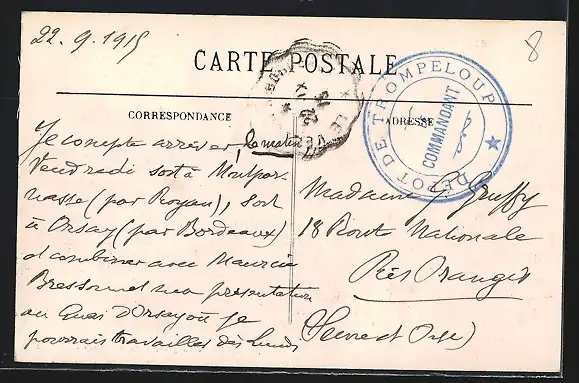 22. 9. 1915
8
CARTE POSTALE
CORRESPONDANCE
ADRESSE
DEPOT DE TROMPELOUP
COMMANDANT
Je compte arriver, le matin
Vendredi soit à Montpar-
nasse (par Royan), soit
à Orsay (par Bordeaux)
et combiner avec Maurice
Bressonnet ma présentation
au Quai d'Orsay où je
pourrais travailler dès lundi
Madame J. Gruffy
18 Route Nationale
Près Orangis
(Seine et Oise)